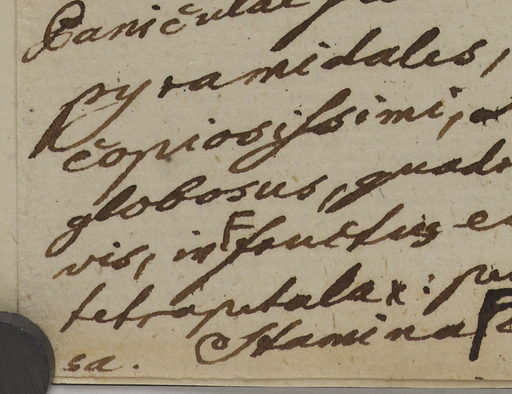 Paniculae
pyramidales,
copiosissimi,
globosus, quadr
vis, in fructus
tetrapetala :
sa. Stamina